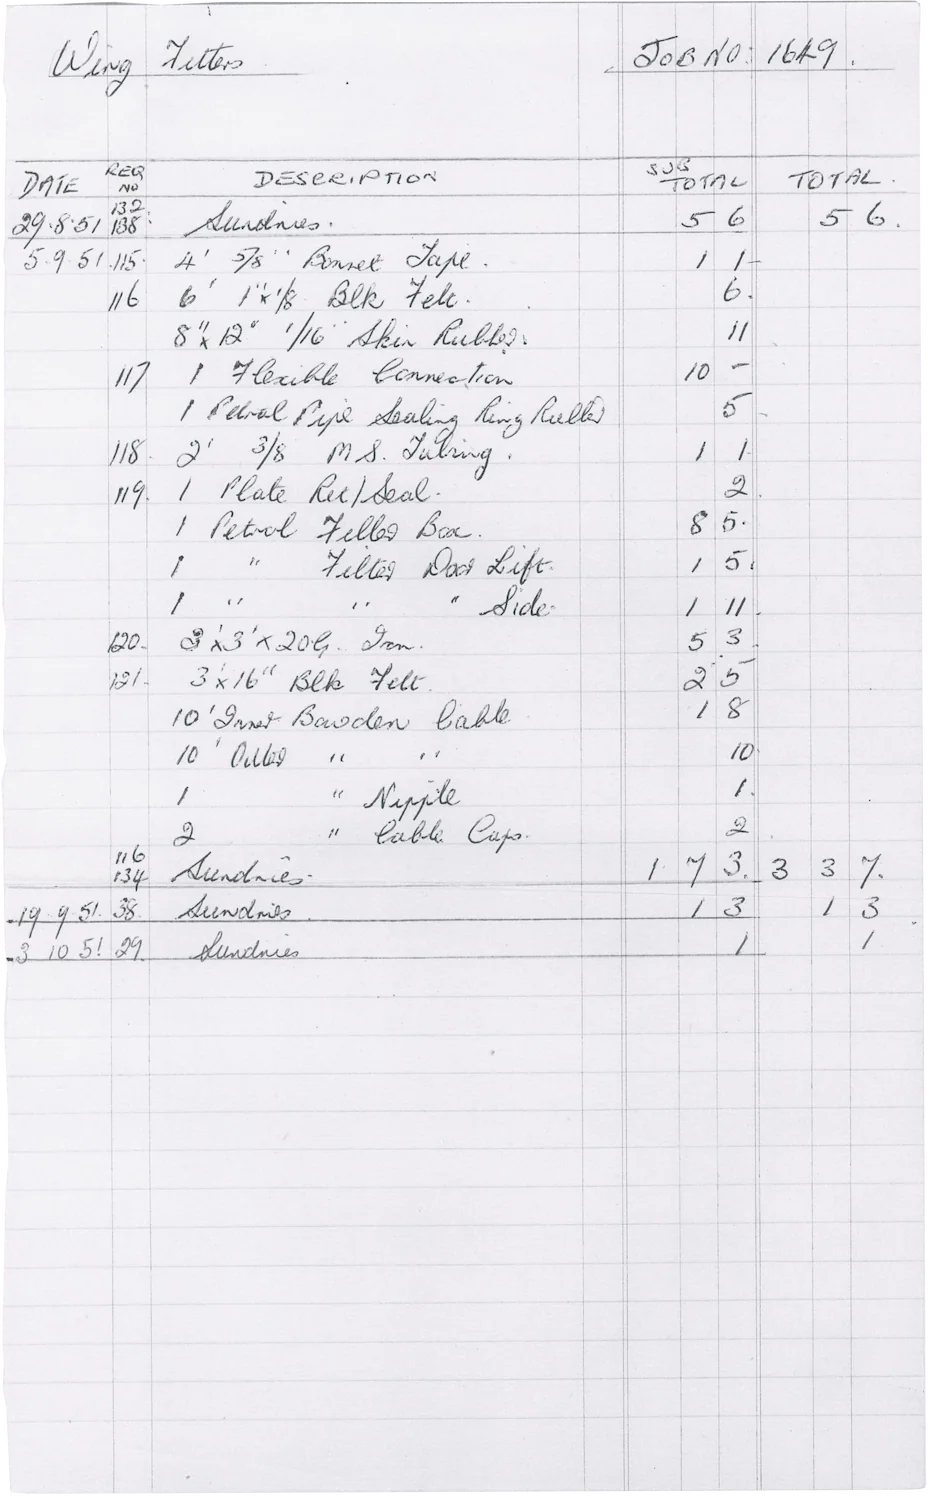 Wing Fitters JOB NO: 1649.
DATE REQ NO DESCRIPTION SUB TOTAL TOTAL.
29.8.51 132. 138. Sundries. 5 6 5 6.
5.9.51. 115. 4' 5/8" Bonnet Tape. 1 1
116 6' 1" x 1/8 Blk Felt. 6.
8" x 12" 1/16" Skin Rubber. 11
117 1 Flexible Connection 10 -
1 Petrol Pipe Sealing Ring Rubber 5
118. 2' 3/8 M.S. Tubing. 1 1
119. 1 Plate Ret/Seal. 2.
1 Petrol Filler Box. 8 5.
1 " Filter Door Lift. 1 5.
1 " " " Side. 1 11.
120. 3' x 3' x 20G. Iron. 5 3.
121. 3' x 16" Blk Felt. 2 5
10' Inner Bowden Cable 1 8
10' Outer " " 10
1 " Nipple 1.
2 " Cable Caps. 2
116 134 Sundries. 1 7 3. 3 3 7.
19 9 51. 38. Sundries. 1 3 1 3
3 10 51 29. Sundries 1 1